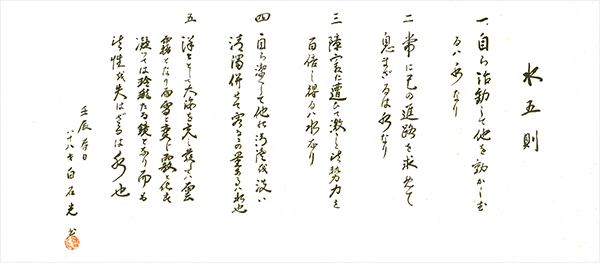 水五則
一 自ら活動して他を動かしむ
るハ水なり
二 常に己の進路を求めて
息まざるは水なり
三 障害に遭て激し其勢力を
百倍し得るハ水なり
四 自ら潔して他の汚濁を洗い
清濁併せて容るゝの量あるハ水也
五 洋々として大海を充し発してハ雲
霧となり雨雪と変じ霰と化す
凝っては玲瓏たる鏡となり而も
其性を失はざるは水也
壬辰春日
八十八才 白石光 書